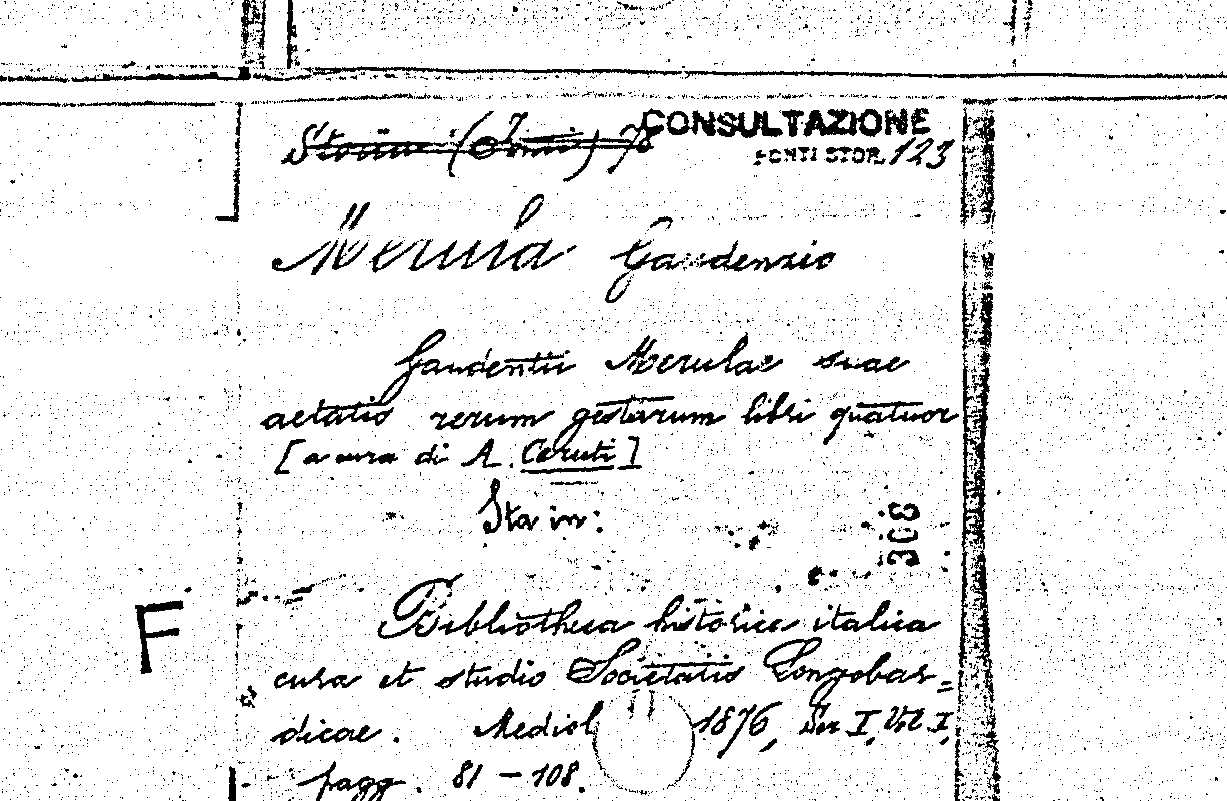 Storia (Fonti) 78
CONSULTAZIONE
FONTI STOR. 123
Merula Gaudenzio
Gaudentii Merulae suae
aetatis rerum gestarum libri quatuor
[a cura di A. Ceruti]
Sta in:
308
Bibliotheca historica italica
F
cura et studio Societatis Longobar=
dicae. Mediol 1876, Ser I, Vol I,
pagg. 81 - 108.